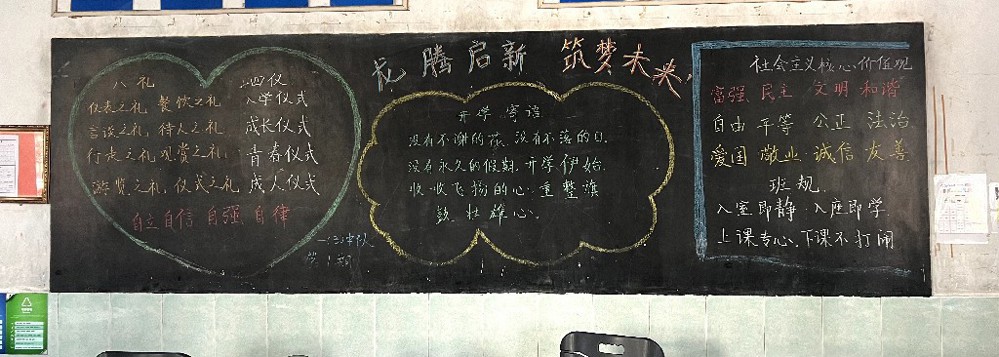 龙腾启新 筑梦未来
八礼 四仪
仪表之礼 餐饮之礼 入学仪式
言谈之礼 待人之礼 成长仪式
行走之礼 观赏之礼 青春仪式
游览之礼 仪式之礼 成人仪式
自立 自信 自强 自律
第1期
开学寄语
没有不谢的花,没有不落的日,
没有永久的假期,开学伊始,
收收飞扬的心,重整旗
鼓,壮雄心。
社会主义核心价值观
富强 民主 文明 和谐
自由 平等 公正 法治
爱国 敬业 诚信 友善
班规
入室即静 入座即学
上课专心,下课不打闹